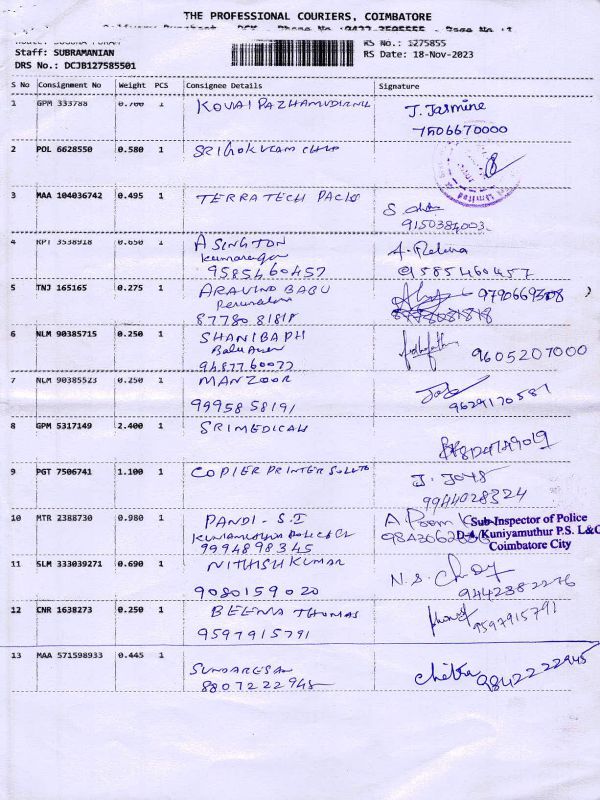 THE PROFESSIONAL COURIERS, COIMBATORE
Staff: SUBRAMANIAN
RS No.: 1275855
DRS No.: DCJB127585501
RS Date: 18-Nov-2023
S No Consignment No Weight PCS Consignee Details Signature
1 GPM 333788 0.700 1 KOVAI J. Jasmine
7506670000
2 POL 6628550 0.580 1
3 MAA 104036742 0.495 1 TERRATECH PACKS
9150384003
4 KPT 3538918 0.650 1 ASINGTON
9585460457 9585460457
5 TNJ 165165 0.275 1 ARAVIND BABU 9790669308
87780 81818
6 NLM 90385715 0.250 1 SHANIBA PH
9605207000
9487760077
7 NLM 90385523 0.250 1 MANZOOR
9995858191 9629170587
8 GPM 5317149 2.400 1 SRIMEDICAL
9 PGT 7506741 1.100 1 COPIER PRINTER J. Joys
9944028324
10 MTR 2388730 0.980 1 PANDI - S.I
Sub-Inspector of Police
D-4, Kuniyamuthur P.S. L&O
9994898345 Coimbatore City
11 SLM 333039271 0.690 1 NITHISH KUMAR
9080159020 9442382276
12 CNR 1638273 0.250 1 BEENA THOMAS
9597915791 9597915791
13 MAA 571598933 0.445 1 SUNDARESAN Chitra 9842222945
8807222945